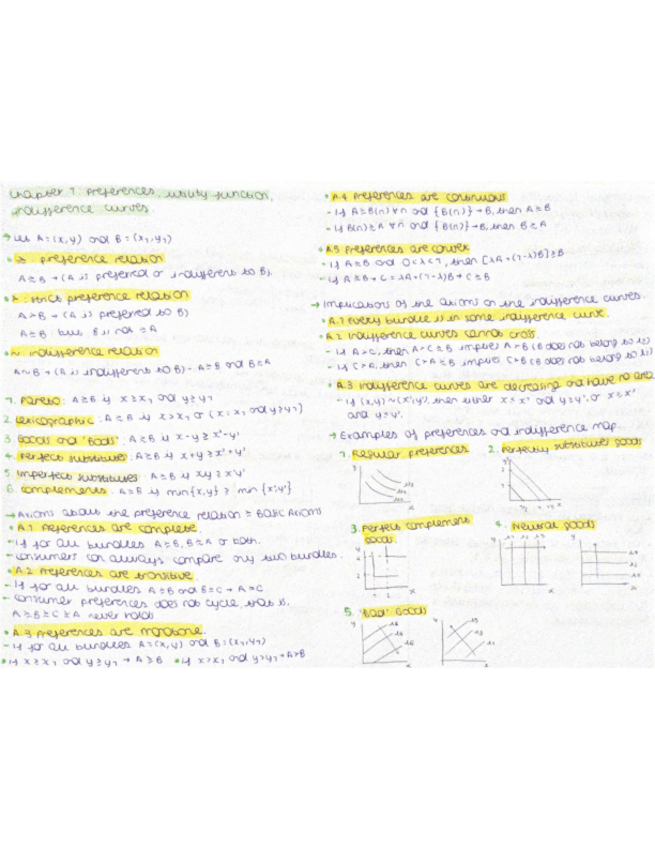 Chapter 1: Preferences, utility function,
indifference curves.
→ Let A=(x,y) and B=(x₁,y₁)
• ≿: preference relation
A≿B → (A is preferred or indifferent to B).
• ≻: strict preference relation
A≻B → (A is preferred to B)
A≿B but B is not ≿A
• ~: indifference relation
A~B → (A is indifferent to B) - A≿B and B≿A
1. Pareto: A≿B if x≥x₁ and y≥y₁
2. Lexicographic: A≿B if x>x₁ or (x=x₁ and y>y₁)
3. Goods and 'Bads': A≿B if x-y≥x'-y'
4. Perfect substitutes: A≿B if x+y≥x'+y'
5. Imperfect substitutes: A≿B if xy≥x'y'
6. Complements: A≿B if min{x,y} ≥ min{x',y'}
→ Axioms about the preference relation = Basic Axioms
• A.1 Preferences are complete.
- If for all bundles A≿B, B≿A or both.
- consumers can always compare any two bundles.
• A.2 Preferences are transitive
- If for all bundles A≿B and B≿C → A≿C
- consumer preferences does not cycle, that is,
A≿B≿C≿A never holds
• A.3 Preferences are monotone.
- If for all bundles A=(x,y) and B=(x₁,y₁)
• If x≥x₁ and y≥y₁ → A≿B • If x>x₁ and y>y₁ → A≻B
• A.4 Preferences are continuous
- If A≿B(n) ∀n and {B(n)}→B, then A≿B
- If B(n)≿A ∀n and {B(n)}→B, then B≿A
• A.5 Preferences are convex
- If A≿B and 0<λ<1, then [λA+(1-λ)B]≿B
- If A≿B → C=λA+(1-λ)B → C≿B
→ Implications of the axioms on the indifference curves.
• A.1 Every bundle is in some indifference curve.
• A.2 Indifference curves cannot cross.
- If A≻C, then A≻C≿B implies A≻B (B does not belong to I₁)
- If C≻A, then C≻A≿B implies C≻B (B does not belong to I₁)
• A.3 Indifference curves are decreasing and have no area
- If (x,y)~(x',y'), then either x≥x' and y≤y', or x≤x'
and y≥y'.
→ Examples of preferences and indifference map.
1. Regular preferences
2. Perfectly substitutes goods
3. Perfect complement
goods.
4. Neutral goods
5. 'Bad' Goods